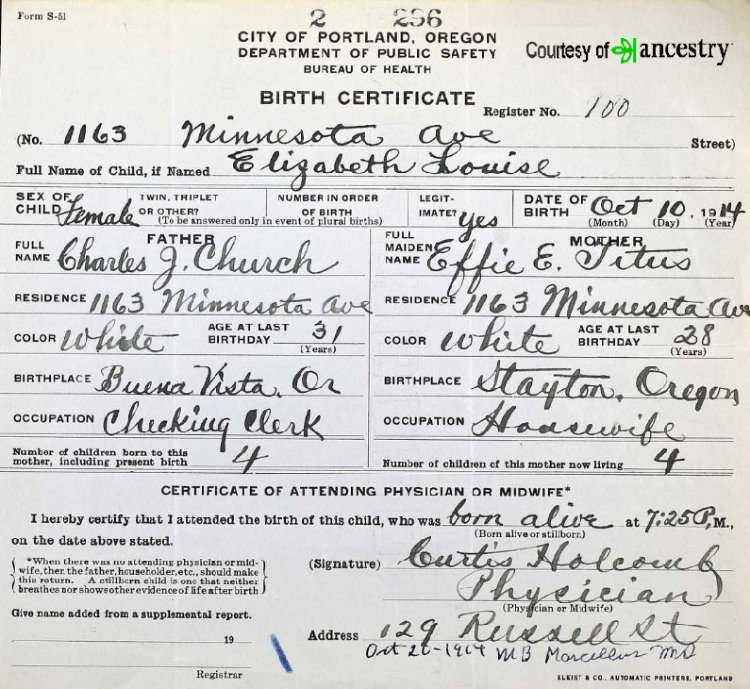 Form S-51
2 296
CITY OF PORTLAND, OREGON
DEPARTMENT OF PUBLIC SAFETY
BUREAU OF HEALTH
Courtesy of ancestry
BIRTH CERTIFICATE
Register No. 100
(No. 1163 Minnesota Ave Street)
Full Name of Child, if Named Elizabeth Louise
SEX OF CHILD Female
TWIN, TRIPLET OR OTHER?
NUMBER IN ORDER OF BIRTH
(To be answered only in event of plural births)
LEGIT-
IMATE? yes
DATE OF BIRTH Oct 10, 1914
(Month) (Day) (Year)
FATHER
FULL NAME Charles J. Church
MOTHER
FULL MAIDEN NAME Effie E. Titus
RESIDENCE 1163 Minnesota Ave
RESIDENCE 1163 Minnesota Ave
COLOR White AGE AT LAST BIRTHDAY 31
(Years)
COLOR White AGE AT LAST BIRTHDAY 28
(Years)
BIRTHPLACE Buena Vista, Or
BIRTHPLACE Stayton, Oregon
OCCUPATION Checking Clerk
OCCUPATION Housewife
Number of children born to this
mother, including present birth 4
Number of children of this mother now living 4
CERTIFICATE OF ATTENDING PHYSICIAN OR MIDWIFE*
I hereby certify that I attended the birth of this child, who was born alive at 7:25 P. M.,
(Born alive or stillborn.)
on the date above stated.
*When there was no attending physician or mid-
wife, then the father, householder, etc., should make
this return. A stillborn child is one that neither
breathes nor shows other evidence of life after birth
(Signature) Curtis Holcomb
Physician
(Physician or Midwife)
Give name added from a supplemental report.
19
Registrar
Address 129 Russell St
Oct 26-1914 MB Marcellus MD
GLEIST & CO., AUTOMATIC PRINTERS, PORTLAND